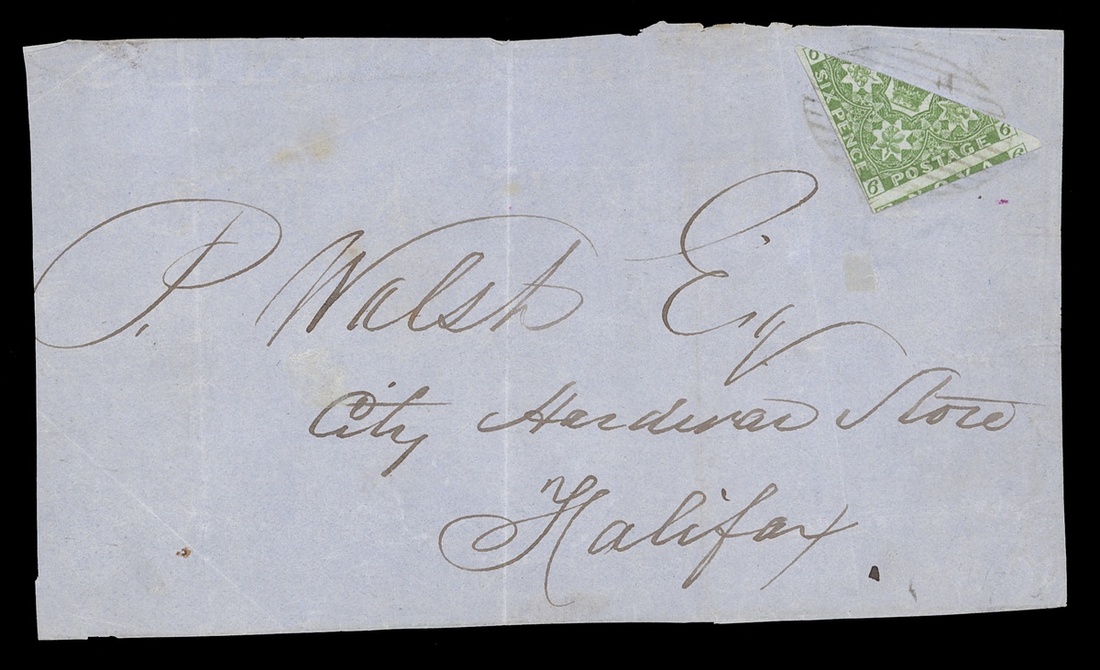 6
SIX PENCE
6
POSTAGE
6
6
P. Walsh Esq
City Hardwar Store
Halifax